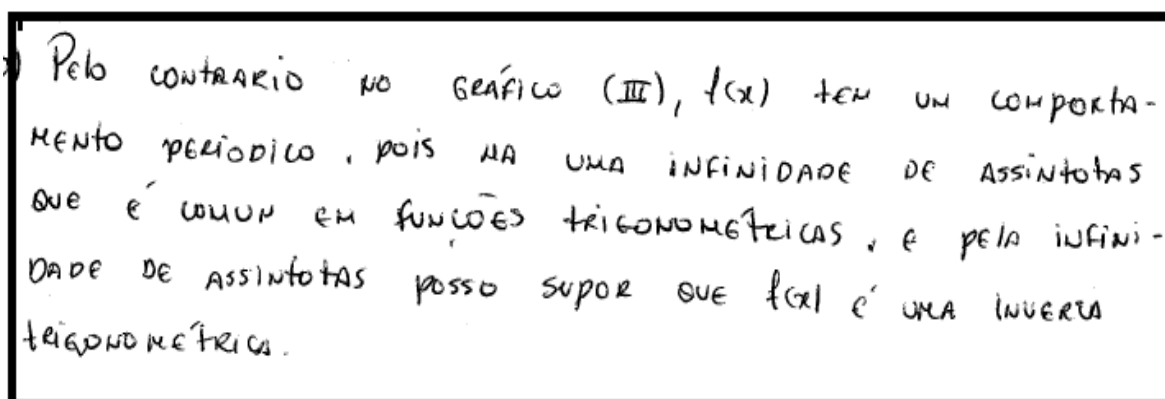 ) Pelo CONTRARIO NO GRÁFICO (III), f(x) tEM UM COMPORTA-
MENTO PERIODICO, POIS HA UMA INFINIDADE DE ASSINTOTAS
QUE É COMUM EM FUNÇÕES TRIGONOMÉTRICAS, E PELA INFINI-
DADE DE ASSINTOTAS POSSO SUPOR QUE f(x) É UMA INVERSA
TRIGONOMÉTRICA.